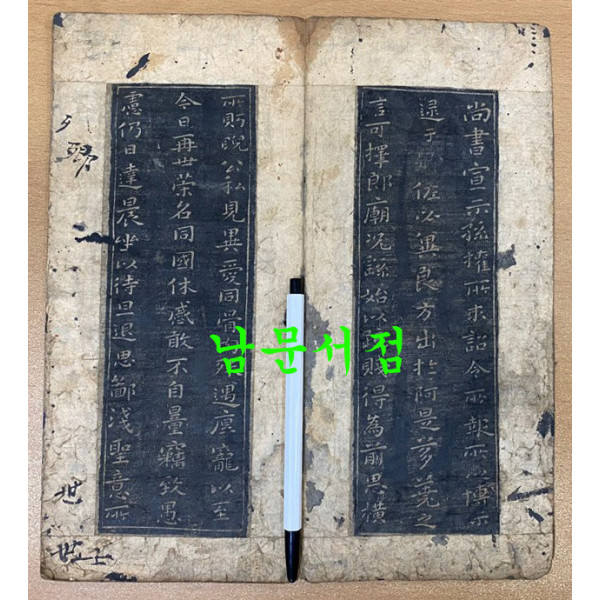 尚書宣示孫權所求詔令所報所以博示
逮于 佐必冀良方出於阿是芻蕘之
言可擇郎廟況繇始以疏賤得為前恩橫
所貺睨公私見異愛同骨 遇厚寵以至
今日再世榮名同國休慼敢不自量竊致愚
慮仍日達晨坐以待旦退思鄙淺聖意所
琴
世
世上
남문서점